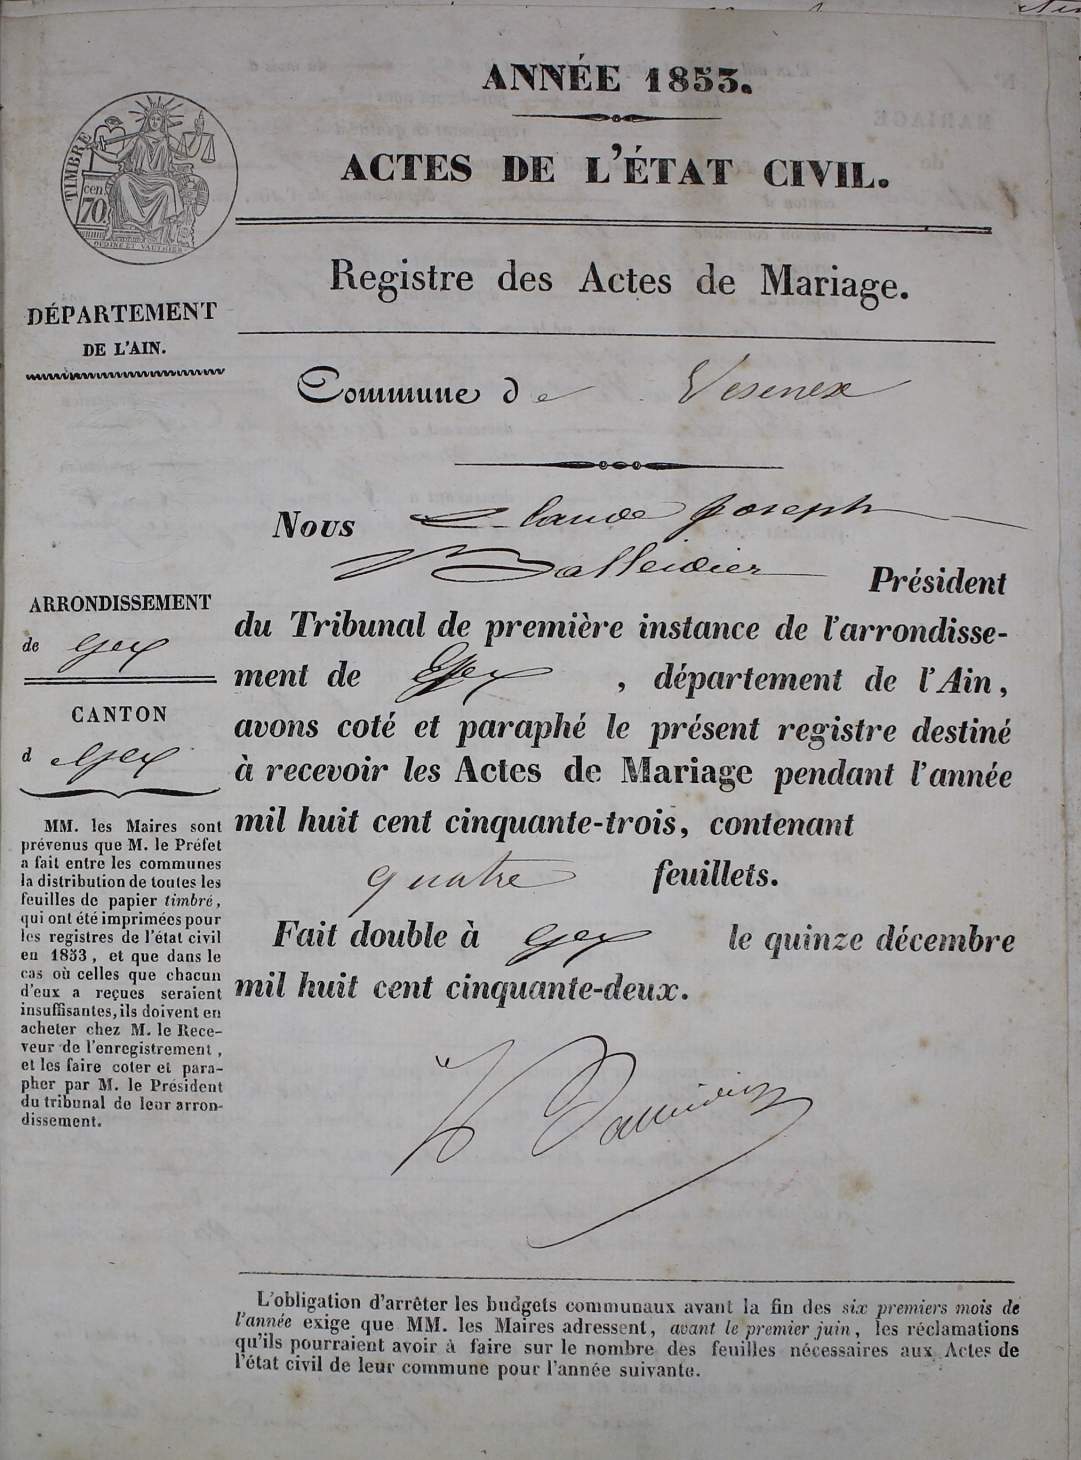 ANNÉE 1853.
ACTES DE L'ÉTAT CIVIL.
TIMBRE
cen
70
OUDINÉ ET VAUTHIER
Registre des Actes de Mariage.
DÉPARTEMENT
DE L'AIN.
Commune de Vesenex
Nous Claude Joseph
Balleidier Président
du Tribunal de première instance de l'arrondisse-
ment de Gex, département de l'Ain,
avons coté et paraphé le présent registre destiné
à recevoir les Actes de Mariage pendant l'année
mil huit cent cinquante-trois, contenant
quatre feuillets.
Fait double à Gex le quinze décembre
mil huit cent cinquante-deux.
ARRONDISSEMENT
de Gex
CANTON
de Gex
MM. les Maires sont
prévenus que M. le Préfet
a fait entre les communes
la distribution de toutes les
feuilles de papier timbré,
qui ont été imprimées pour
les registres de l'état civil
en 1853, et que dans le
cas où celles que chacun
d'eux a reçues seraient
insuffisantes, ils doivent en
acheter chez M. le Rece-
veur de l'enregistrement,
et les faire coter et para-
pher par M. le Président
du tribunal de leur arron-
dissement.
Balleidier
L'obligation d'arrêter les budgets communaux avant la fin des six premiers mois de
l'année exige que MM. les Maires adressent, avant le premier juin, les réclamations
qu'ils pourraient avoir à faire sur le nombre des feuilles nécessaires aux Actes de
l'état civil de leur commune pour l'année suivante.